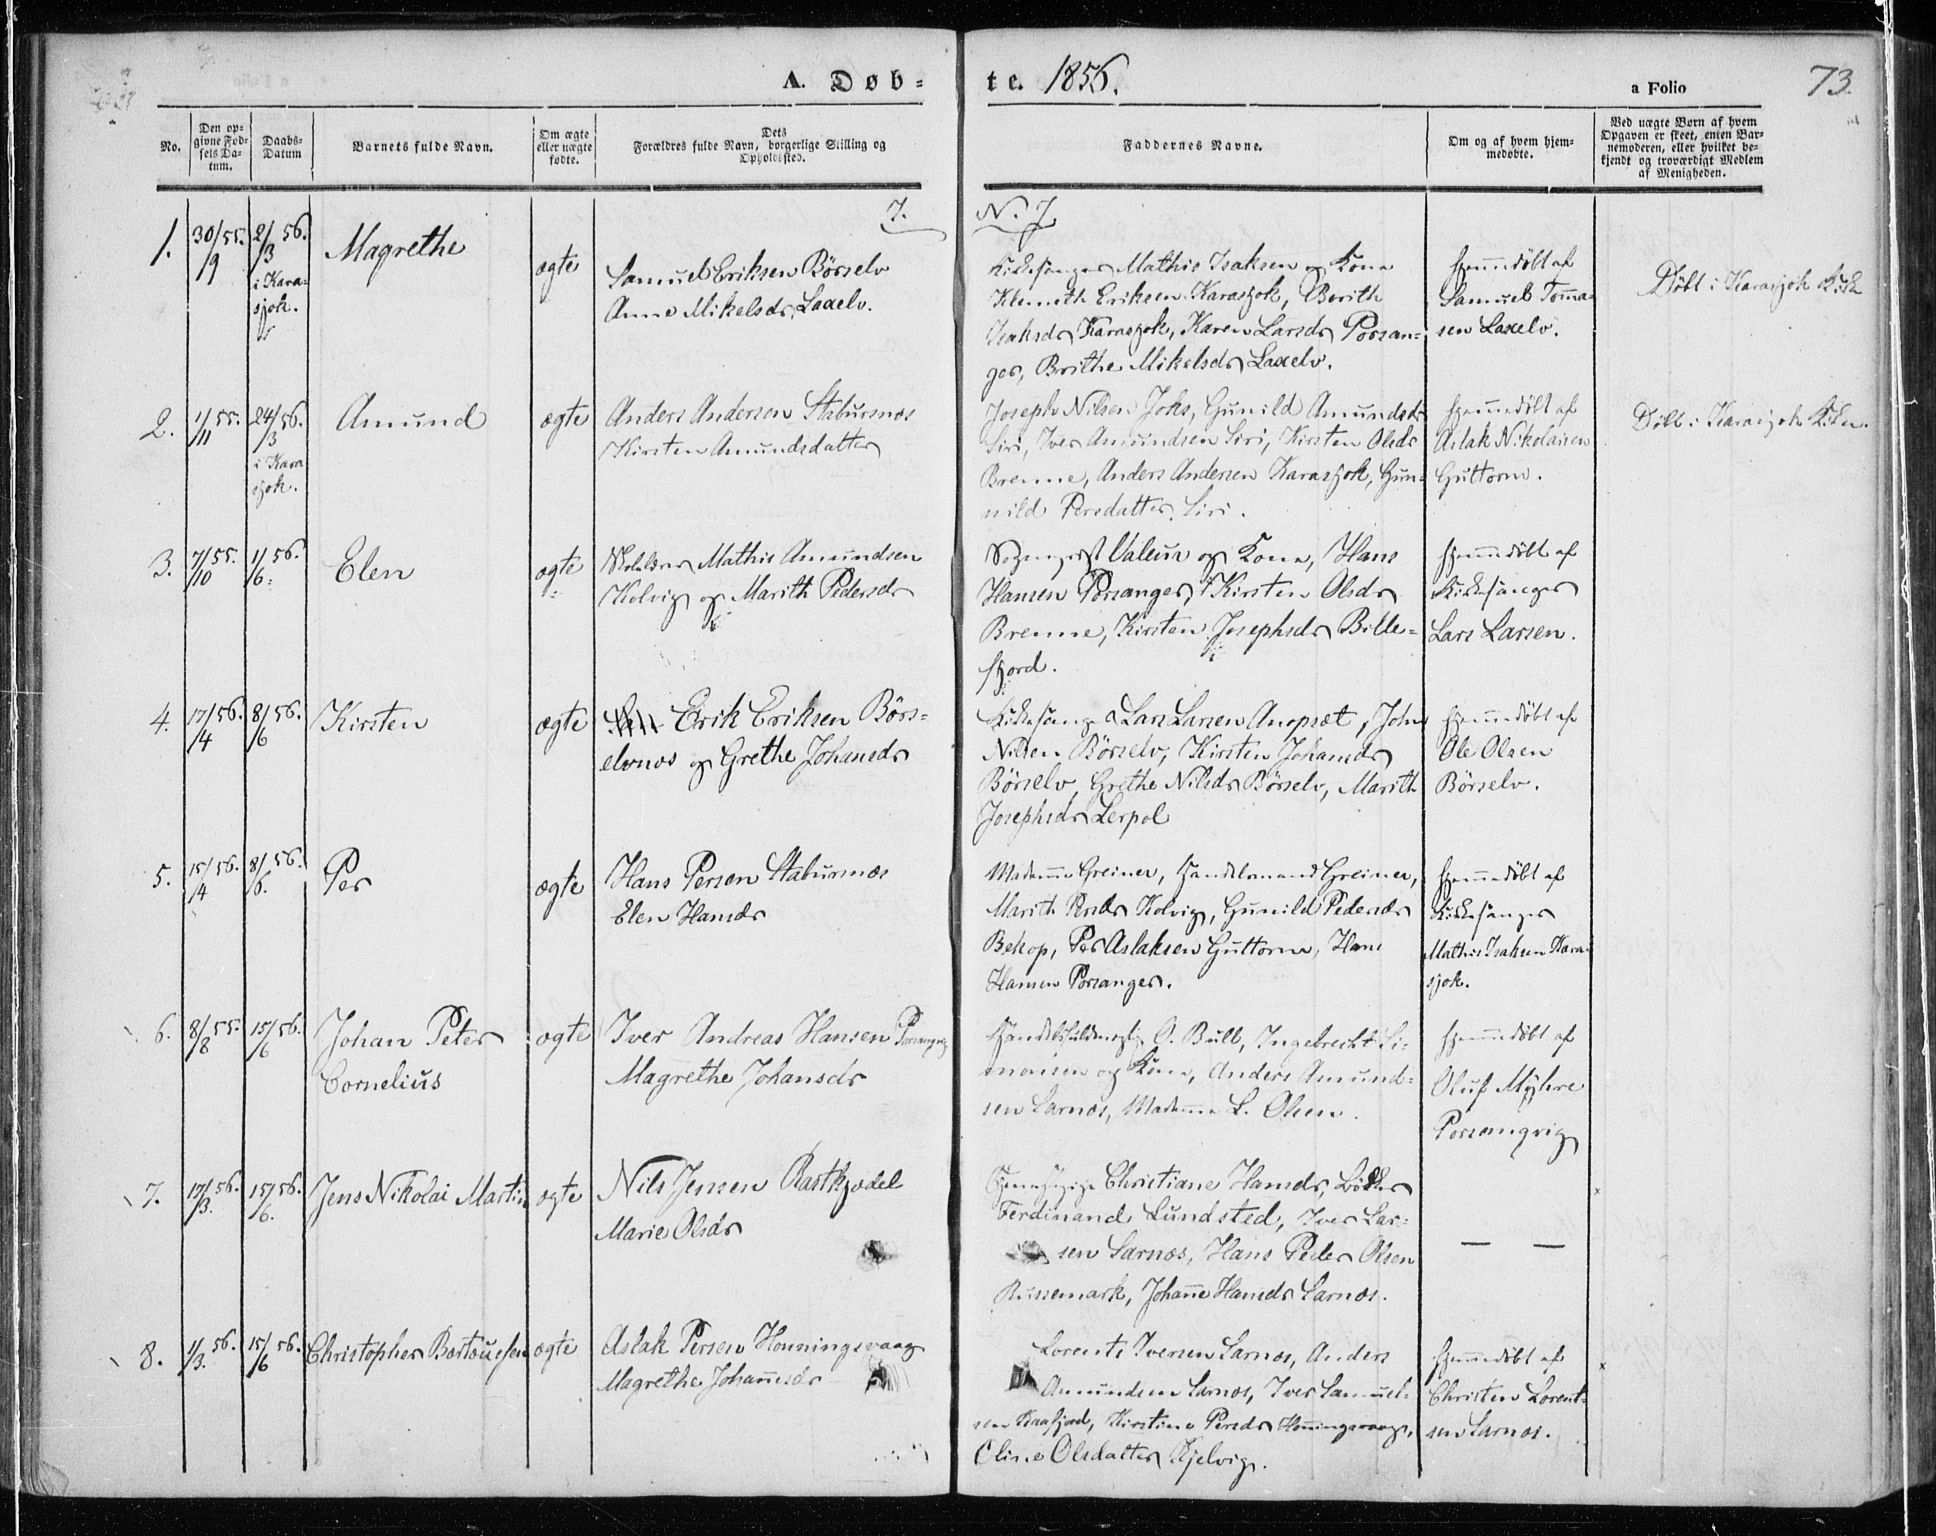 A. Døb-
te. 1856.
a Folio
73.
No.
Den op-
givne Fød-
sels Da-
tum.
Daabs-
Datum
Barnets fulde Navn.
Om ægte
eller uægte
fødte.
Dets
Forældres fulde Navn, borgerlige Stilling og
Opholdssted.
Faddernes Navne.
Om og af hvem hjem-
medøbte.
Ved uægte Børn af hvem
Opgaven er skeet, enten Bar-
nemoderen, eller hvilket be-
kjendt og troværdigt Medlem
af Menigheden.
7.
N. 7
1.
30/9 55.
2/3 56.
i Kara-
sjok.
Magrethe
ægte
Samuel Eriksen Börselv
Anne Mikelsdr, Laxelv.
Kirkesanger Mathis Isaksen og Kone
Klemeth Eriksen Karasjok, Berith
Isaksdr Karasjok, Karen Larsdr Porsan-
ger, Brithe Mikelsdr Laxelv.
hjemmedøbt af
Samuel Toma-
sen Laxelv.
Döbt i Karasjok Kirke
2.
1/11 55.
24/3 56.
i Kara-
sjok.
Amund
ægte
Anders Andersen Stabursnæs
Kirsten Amundsdatter
Joseph Nilsen Joks, Gunild Amundsdr
Siri, Iver Amundsen Siri, Kirsten Olsdr
Brenne, Anders Andersen Karasjok, Gun-
nild Persdatter Siri.
hjemmedöbt af
Aslak Nikolaisen
Guttorm.
Döbt i Karasjok Kirken.
3.
7/10 55.
1/6 56.
Elen
ægte
Mathis Amundsen
Kolvig og Marith Pedersdr
Sogneprest Valeur og Kone, Hans
Hansen Porsanger, Kirsten Olsdr
Brenne, Kirsten Josephsdr Bille-
fjord.
hjemmedöbt af
Kirkesanger
Lars Larsen.
4.
17/4 56.
8/6 56.
Kirsten
ægte
Erik Eriksen Börs-
elvnes og Grethe Johansdr
Kirkesanger Lars Larsen Anopset, John
Nilsen Börselv, Kirsten Johansdr
Börselv, Grethe Nilsdr Börselv, Marith
Josephsdr Lerpol
hjemmedöbt af
Ole Olsen
Börselv.
5.
15/4 56.
8/6 56.
Per
ægte
Hans Persen Stabursnæs
Elen Hansdr
Madamme Greiner, Handelsmand Greiner,
Marith Persdr Kolvig, Gunild Pedersdr
Bekop, Per Aslaksen Guttorm, Hans
Hansen Porsanger.
hjemmedöbt af
Kirkesanger
Mathis Isaksen Kara-
sjok.
6.
8/8 55.
15/6 56.
Johan Peter
Cornelius
ægte
Iver Andreas Hansen Porsangvig
Magrethe Johansdr
Handelsfuldmægtig O. Bull, Ingebrecht Si-
monsen og Kone, Anders Amund-
sen Sarnes, Madamme L. Olsen.
hjemmedöbt af
Oluf Myhre
Porsangvig
7.
17/3 56.
15/6 56.
Jens Nikolai Martin
ægte
Nils Jensen
Marie Olsdr
Christiane Hansdr, Bödker
Ferdinand Lundsted, Iver Lar-
sen Sarnes, Hans Peder Olsen
Russemark, Johane Hansdr Sarnes.
— —
8.
1/3 56.
15/6 56.
Christopher
ægte
Aslak Persen Honningsvaag
Magrethe Johannesdr
Lorents Iversen Sarnes, Anders
Amundsen Sarnes, Iver Samuel-
sen Kaafjord, Kirstine Persdr Honningsvaag,
Eline Olsdatter Kjelvig.
hjemmedöbt af
Christen Lorent-
sen Sarnes.